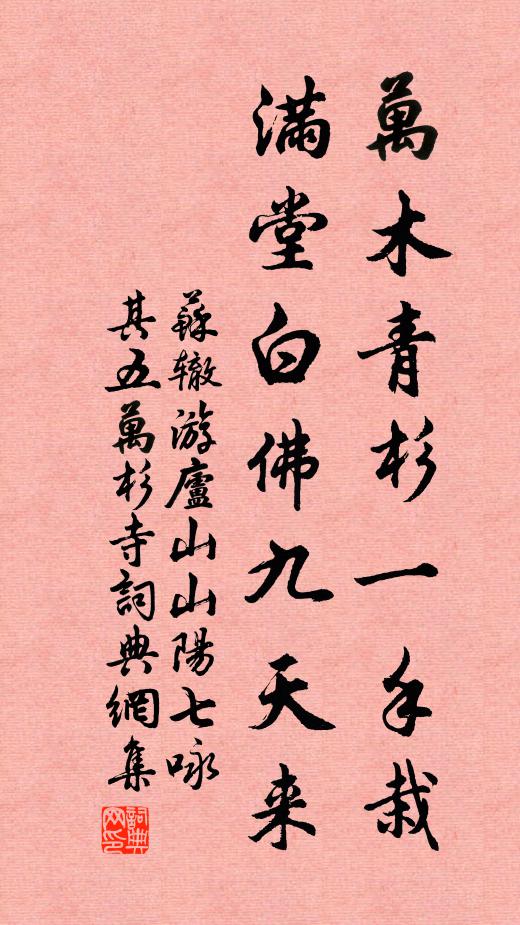 萬木青杉一手栽
满堂白佛九天来
蘇辙游廬山山陽七咏
其五萬杉寺詞典網集
詞典网印